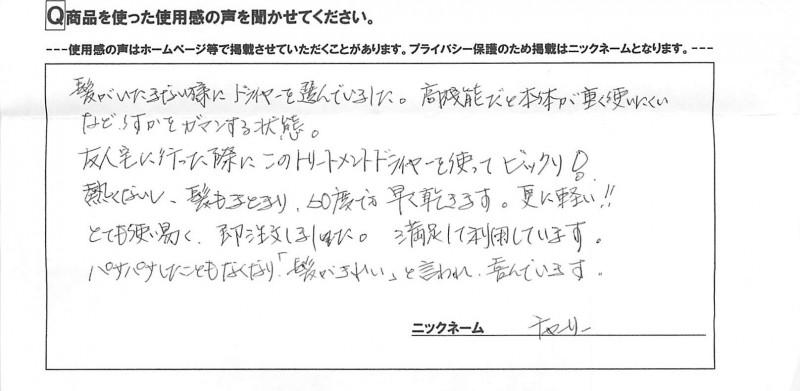 Q商品を使った使用感の声を聞かせてください。
---使用感の声はホームページ等で掲載させていただくことがあります。プライバシー保護のため掲載はニックネームとなります。---
髪がいたまない様に ドライヤーを選んでいました。高機能だと本体が重く使いにくい
など何かをガマンする状態。
友人宅に行った際にこのトリートメントドライヤーを使って ビックリ!
熱くないし、髪もまとまり、60度で早く乾きます。更に軽い!!
とても使い易く、即注文しました。満足して利用しています。
パサパサしたこともなくなり「髪がきれい」と言われ、喜んでいます。
ニックネーム チャーリー